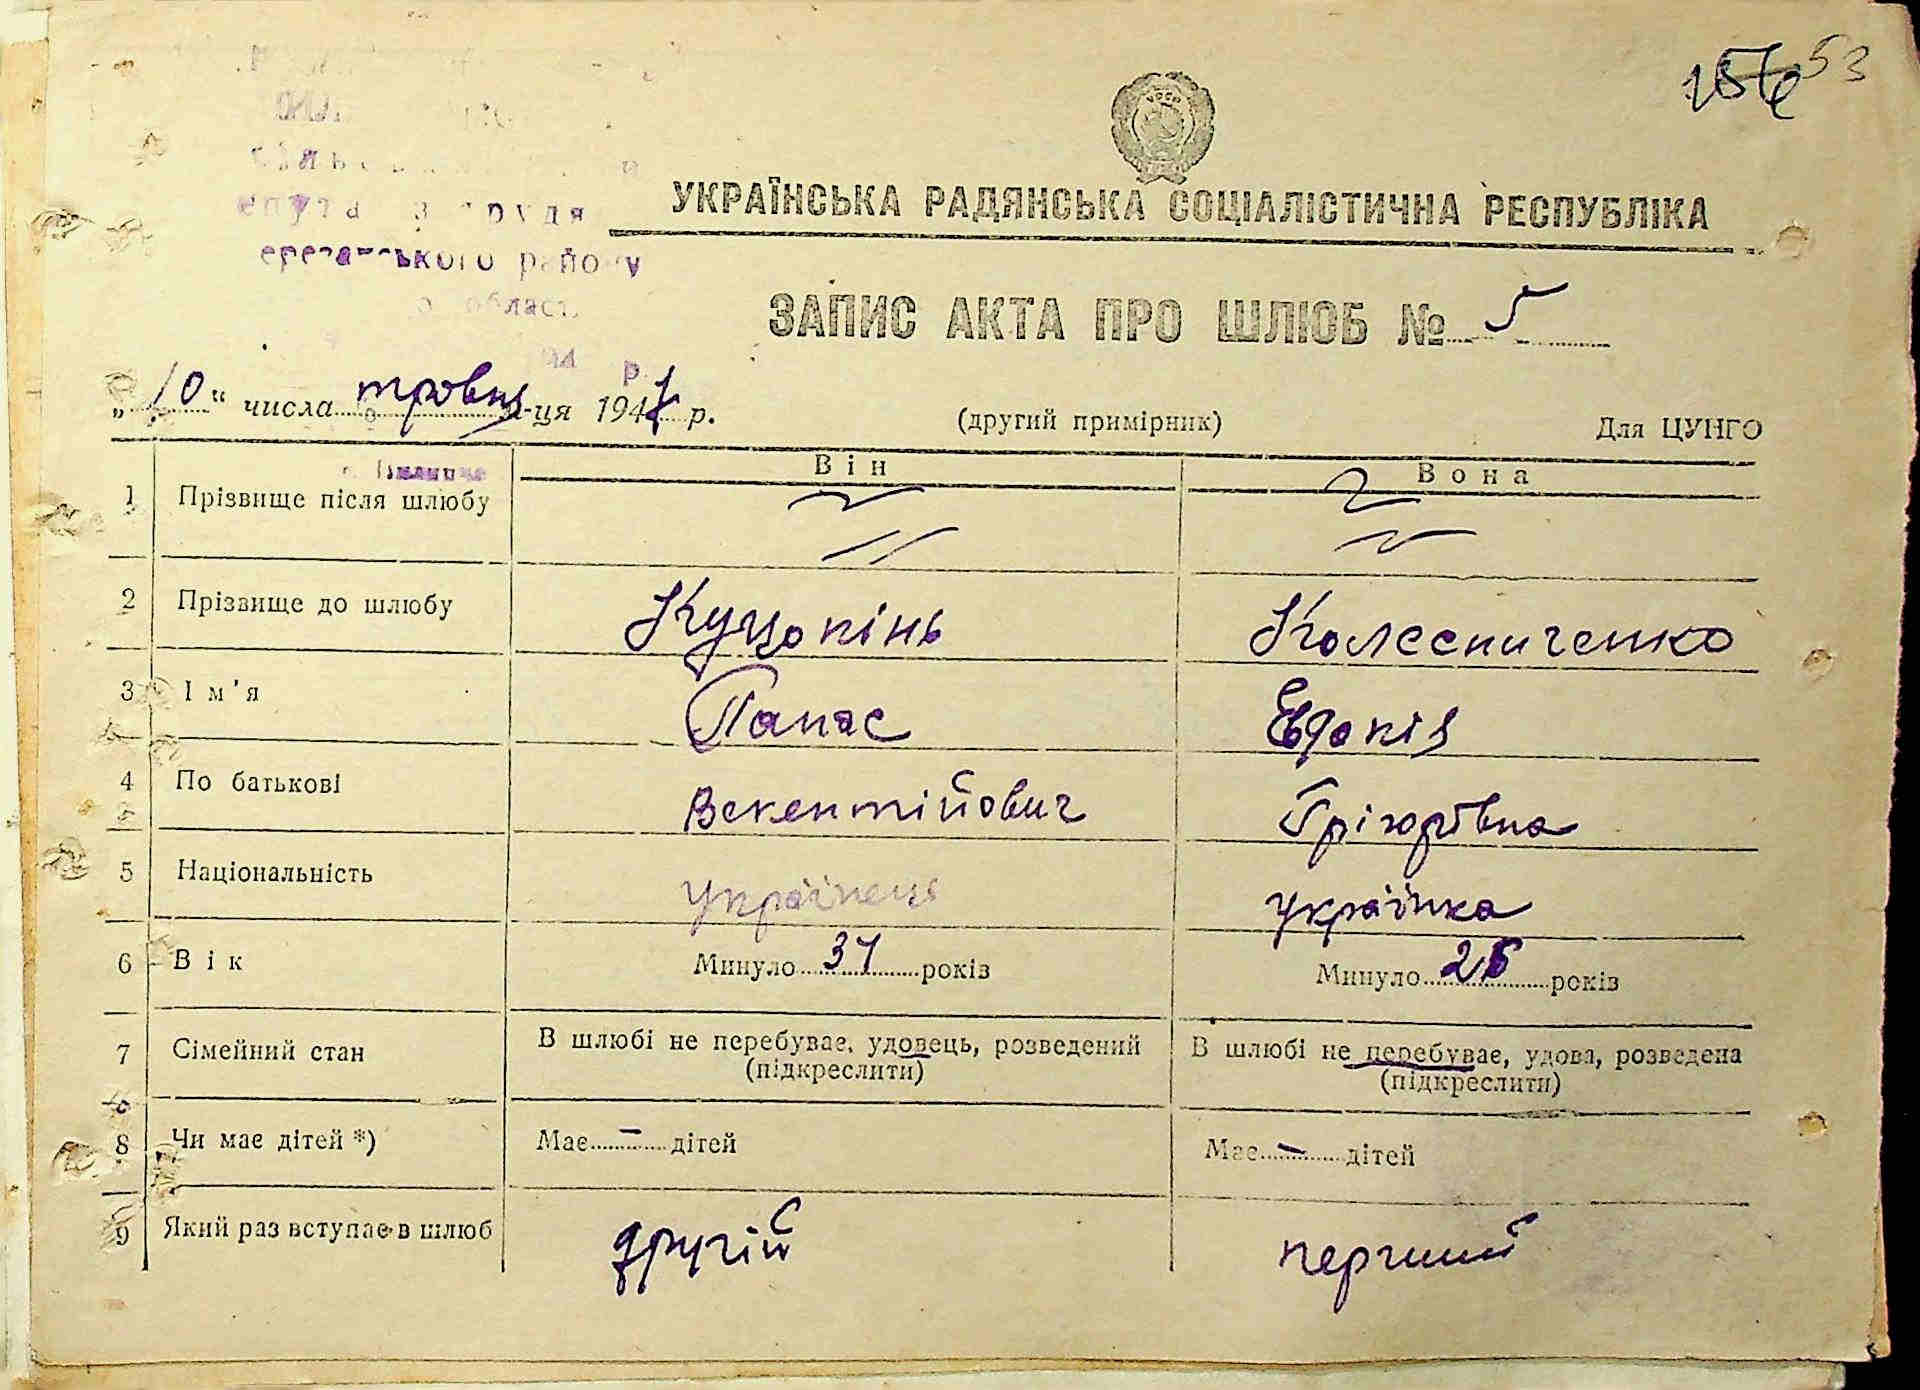 53
УРСР
УКРАЇНСЬКА РАДЯНСЬКА СОЦІАЛІСТИЧНА РЕСПУБЛІКА
району
ЗАПИС АКТА ПРО ШЛЮБ № 5
р.
„10“ числа травня м-ця 194 р.
(другий примірник)
Для ЦУНГО
Він Вона
1 Прізвище після шлюбу
2 Прізвище до шлюбу Куцопінь Колесниченко
3 Ім'я Панас Евдокія
4 По батькові Векентійович Грігорівна
5 Національність українець українка
6 Вік Минуло 37 років Минуло років
7 Сімейний стан В шлюбі не перебуває, удовець, розведений (підкреслити) В шлюбі не перебуває, удова, розведена (підкреслити)
8 Чи має дітей *) Має - дітей Має - дітей
9 Який раз вступає в шлюб другій перший